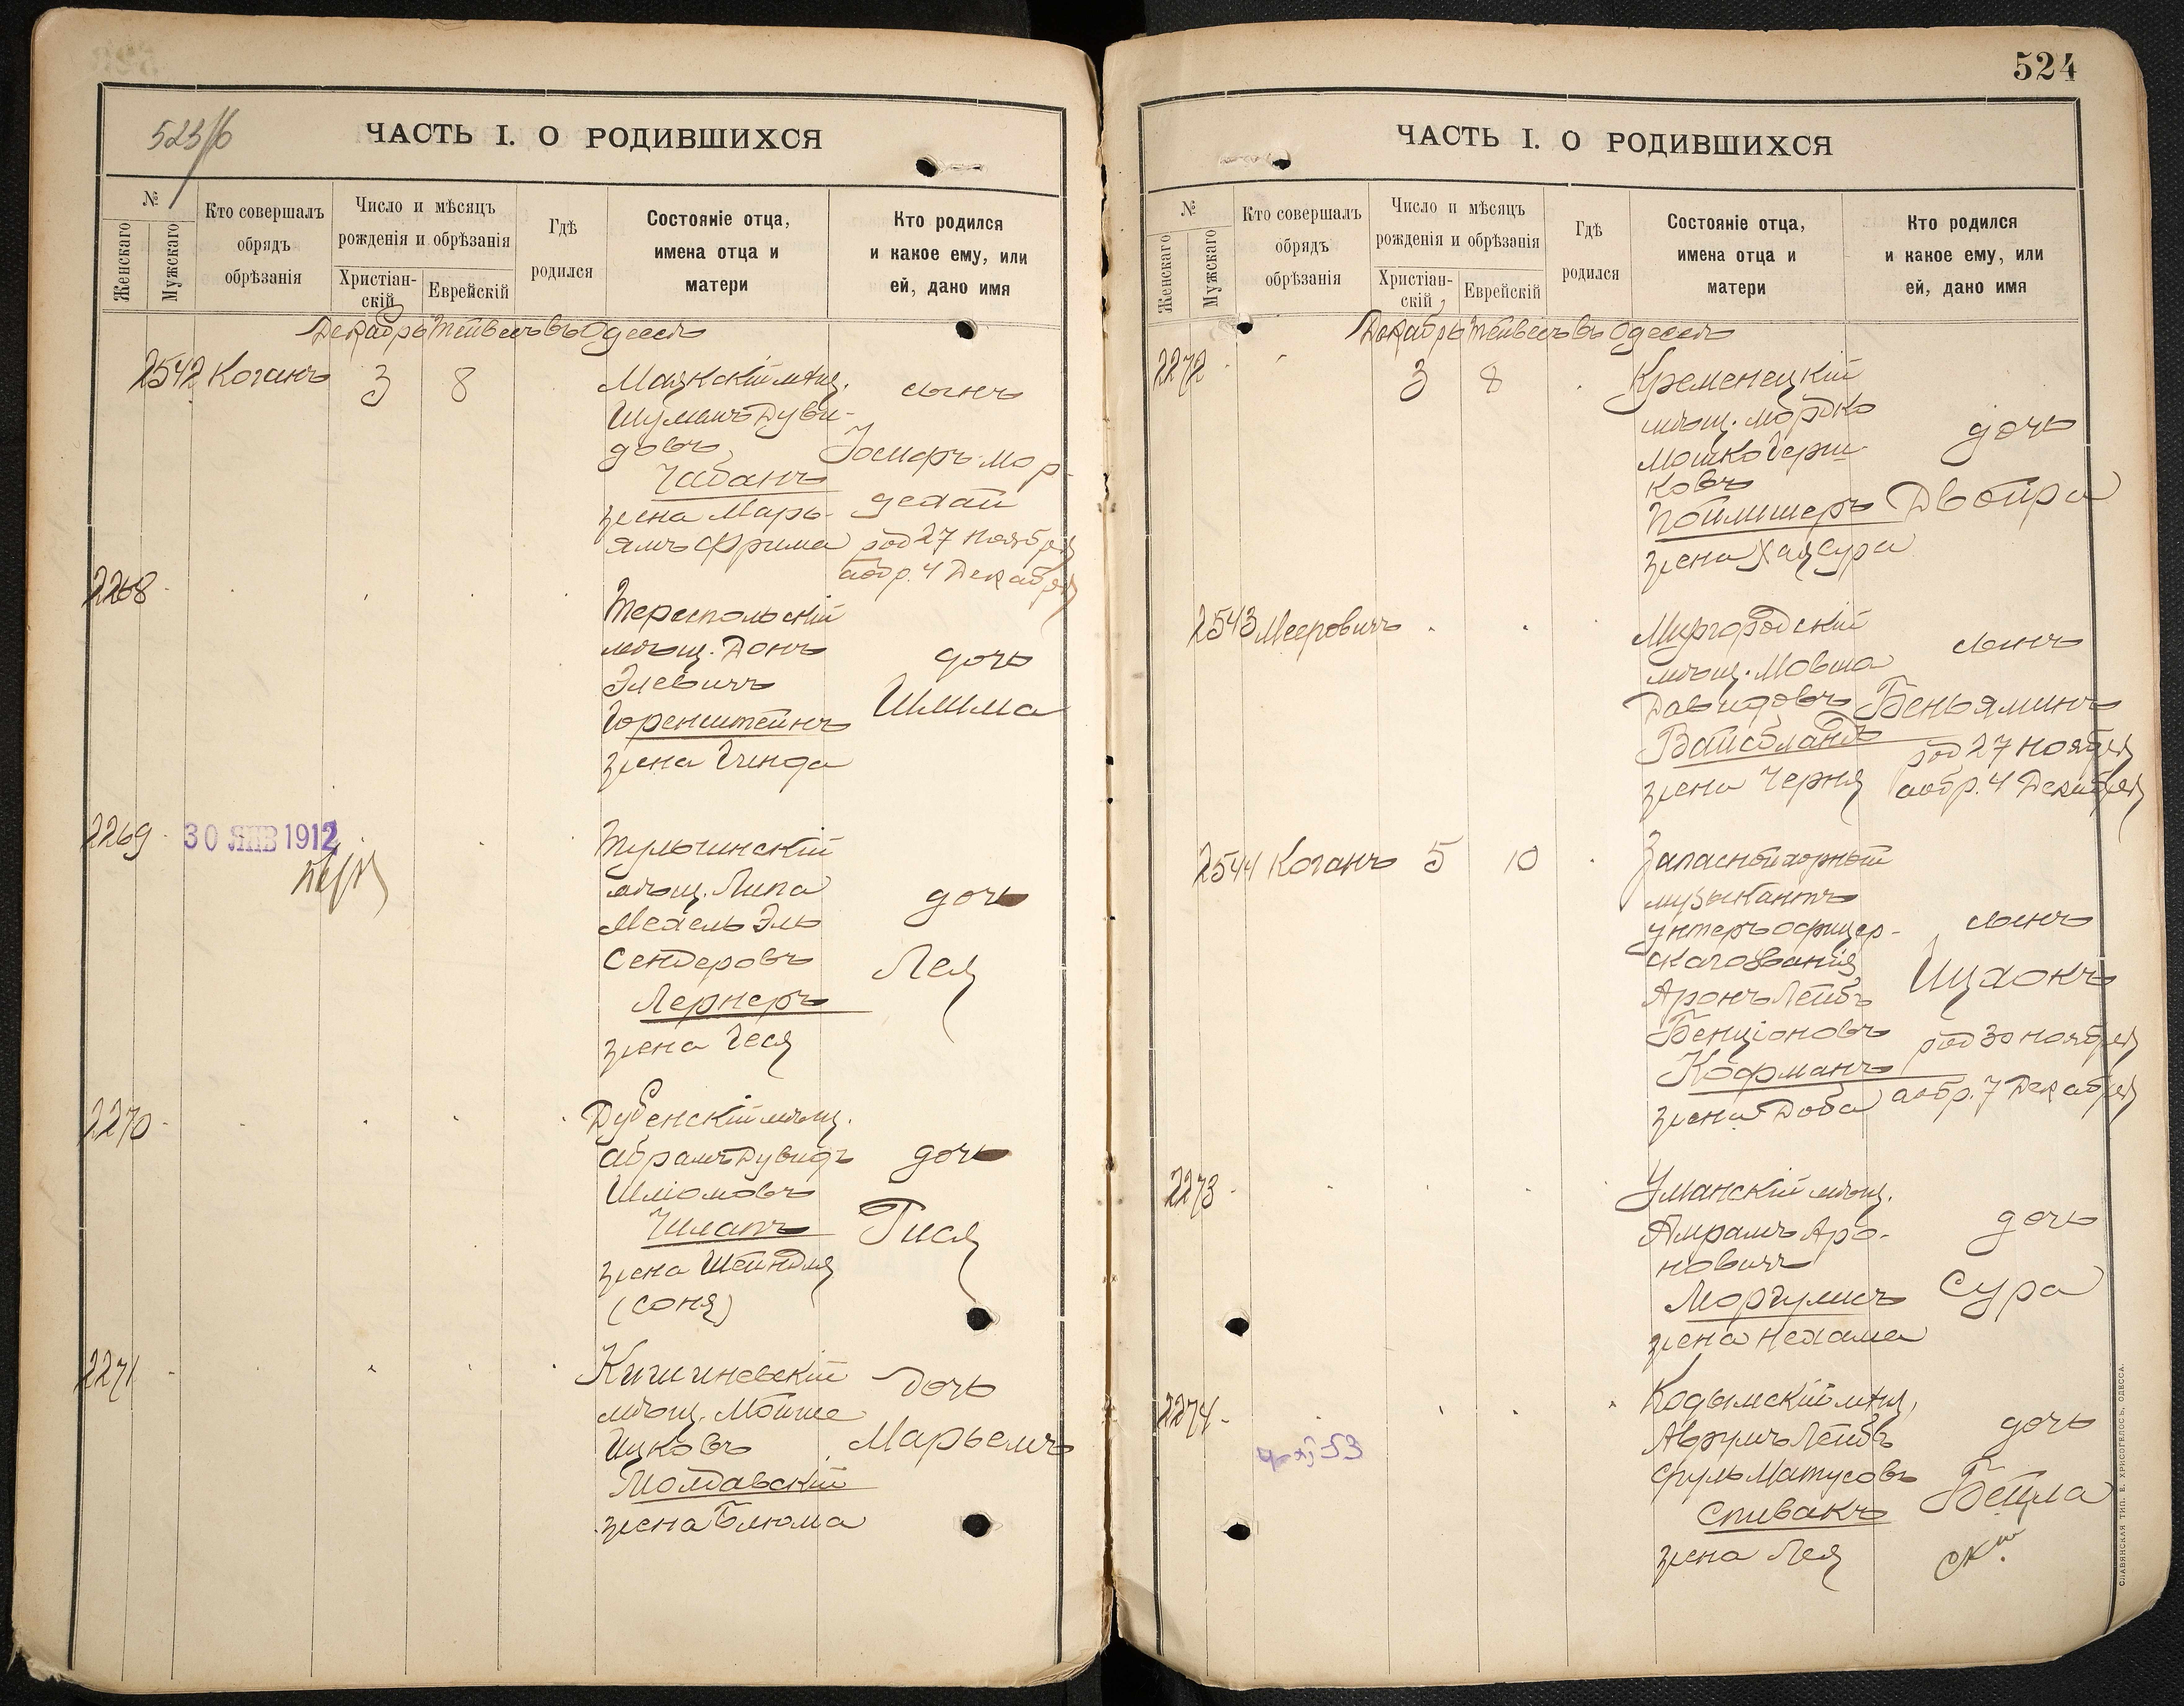 523/б
ЧАСТЬ I. О РОДИВШИХСЯ
№
Женскаго
Мужскаго
Кто совершалъ
обрядъ
обрѣзанія
Число и мѣсяцъ
рожденія и обрѣзанія
Христіан-
скій
Еврейскій
Гдѣ
родился
Состояніе отца,
имена отца и
матери
Кто родился
и какое ему, или
ей, дано имя
Декабрь Тейвесъ въ Одессѣ
2542 Коганъ 3 8
Маякскій мѣщ.
Шулимъ Дуви-
довъ
Чабанъ
жена Марь-
ямъ Фрима
сынъ
Іосифъ Мор-
дехай
род 27 Ноября
а обр. 4 Декабря
2268
Тереспольскій
мѣщ. Донъ
Элевичъ
Горенштейнъ
жена Гинда
дочь
Шлима
2269
30 ЯНВ 1912
Тульчинскій
мѣщ. Липа
Мехель Эль
Сендеровъ
Лернеръ
жена Геся
дочь
Лея
2270
Дубенскій мѣщ.
Абрамъ Дувидъ
Шліомовъ
жена Шейндля
(Соня)
дочь
Гися
2271
Кишиневскій
мѣщ. Мойше
Ицковъ
Молдавскій
жена Блюма
дочь
Марьемъ
524
ЧАСТЬ I. О РОДИВШИХСЯ
№
Женскаго
Мужскаго
Кто совершалъ
обрядъ
обрѣзанія
Число и мѣсяцъ
рожденія и обрѣзанія
Христіан-
скій
Еврейскій
Гдѣ
родился
Состояніе отца,
имена отца и
матери
Кто родился
и какое ему, или
ей, дано имя
Декабрь Тейвесъ въ Одессѣ
2272 3 8
Кременецкій
мѣщ. Мордко
Мошко Герш-
ковъ
Пойлишеръ
жена Хая Сура
дочь
Двойра
2543 Мееровичъ
Миргородскій
мѣщ. Мовша
Давидовъ
Вайсбландъ
жена Черня
сынъ
Беньяминъ
род 27 Ноября
а обр. 4 Декабря
2544 Коганъ 5 10
Запасной горный
музыкантъ
унтеръ офицер-
скаго званія
Аронъ Лейбъ
Бенціоновъ
Кофманъ
жена Доба
сынъ
Ицхокъ
род 30 Ноября
а обр. 7 Декабря
2273
Уманскій мѣщ.
Амрамъ Аро-
новичъ
Моргулисъ
жена Нехама
дочь
Сура
2274
Кодымскій мѣщ.
Аврумъ Лейбъ
Сруль Матусовъ
Спивакъ
жена Лея
дочь
Бейла
СЛАВЯНСКАЯ ТИП. Е. ХРИСОГЕЛОСЪ, ОДЕССА.